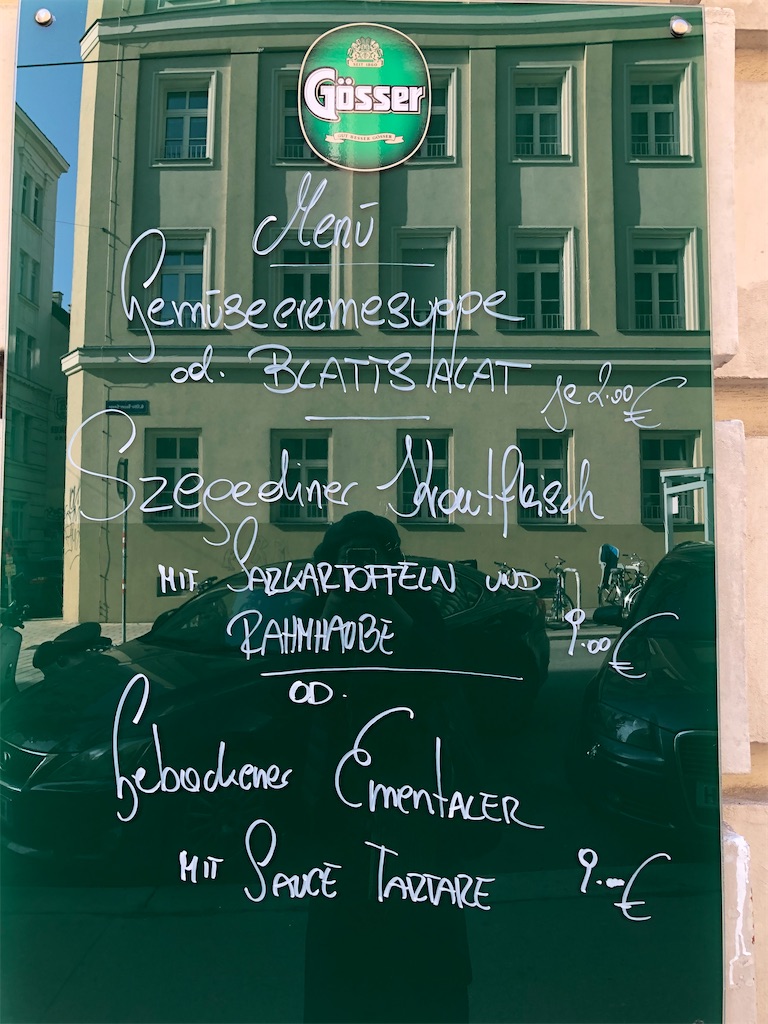 SEIT 1860
Gösser
GUT BESSER GÖSSER
Menü
Gemüsecremesuppe
od. BLATTSALAT je 2.00 €
Szegediner Krautfleisch
MIT SALZKARTOFFELN UND
RAHMHAUBE 9.00 €
OD.
Gebackener EmenTALER
MIT SAUCE TARTARE 9.- €